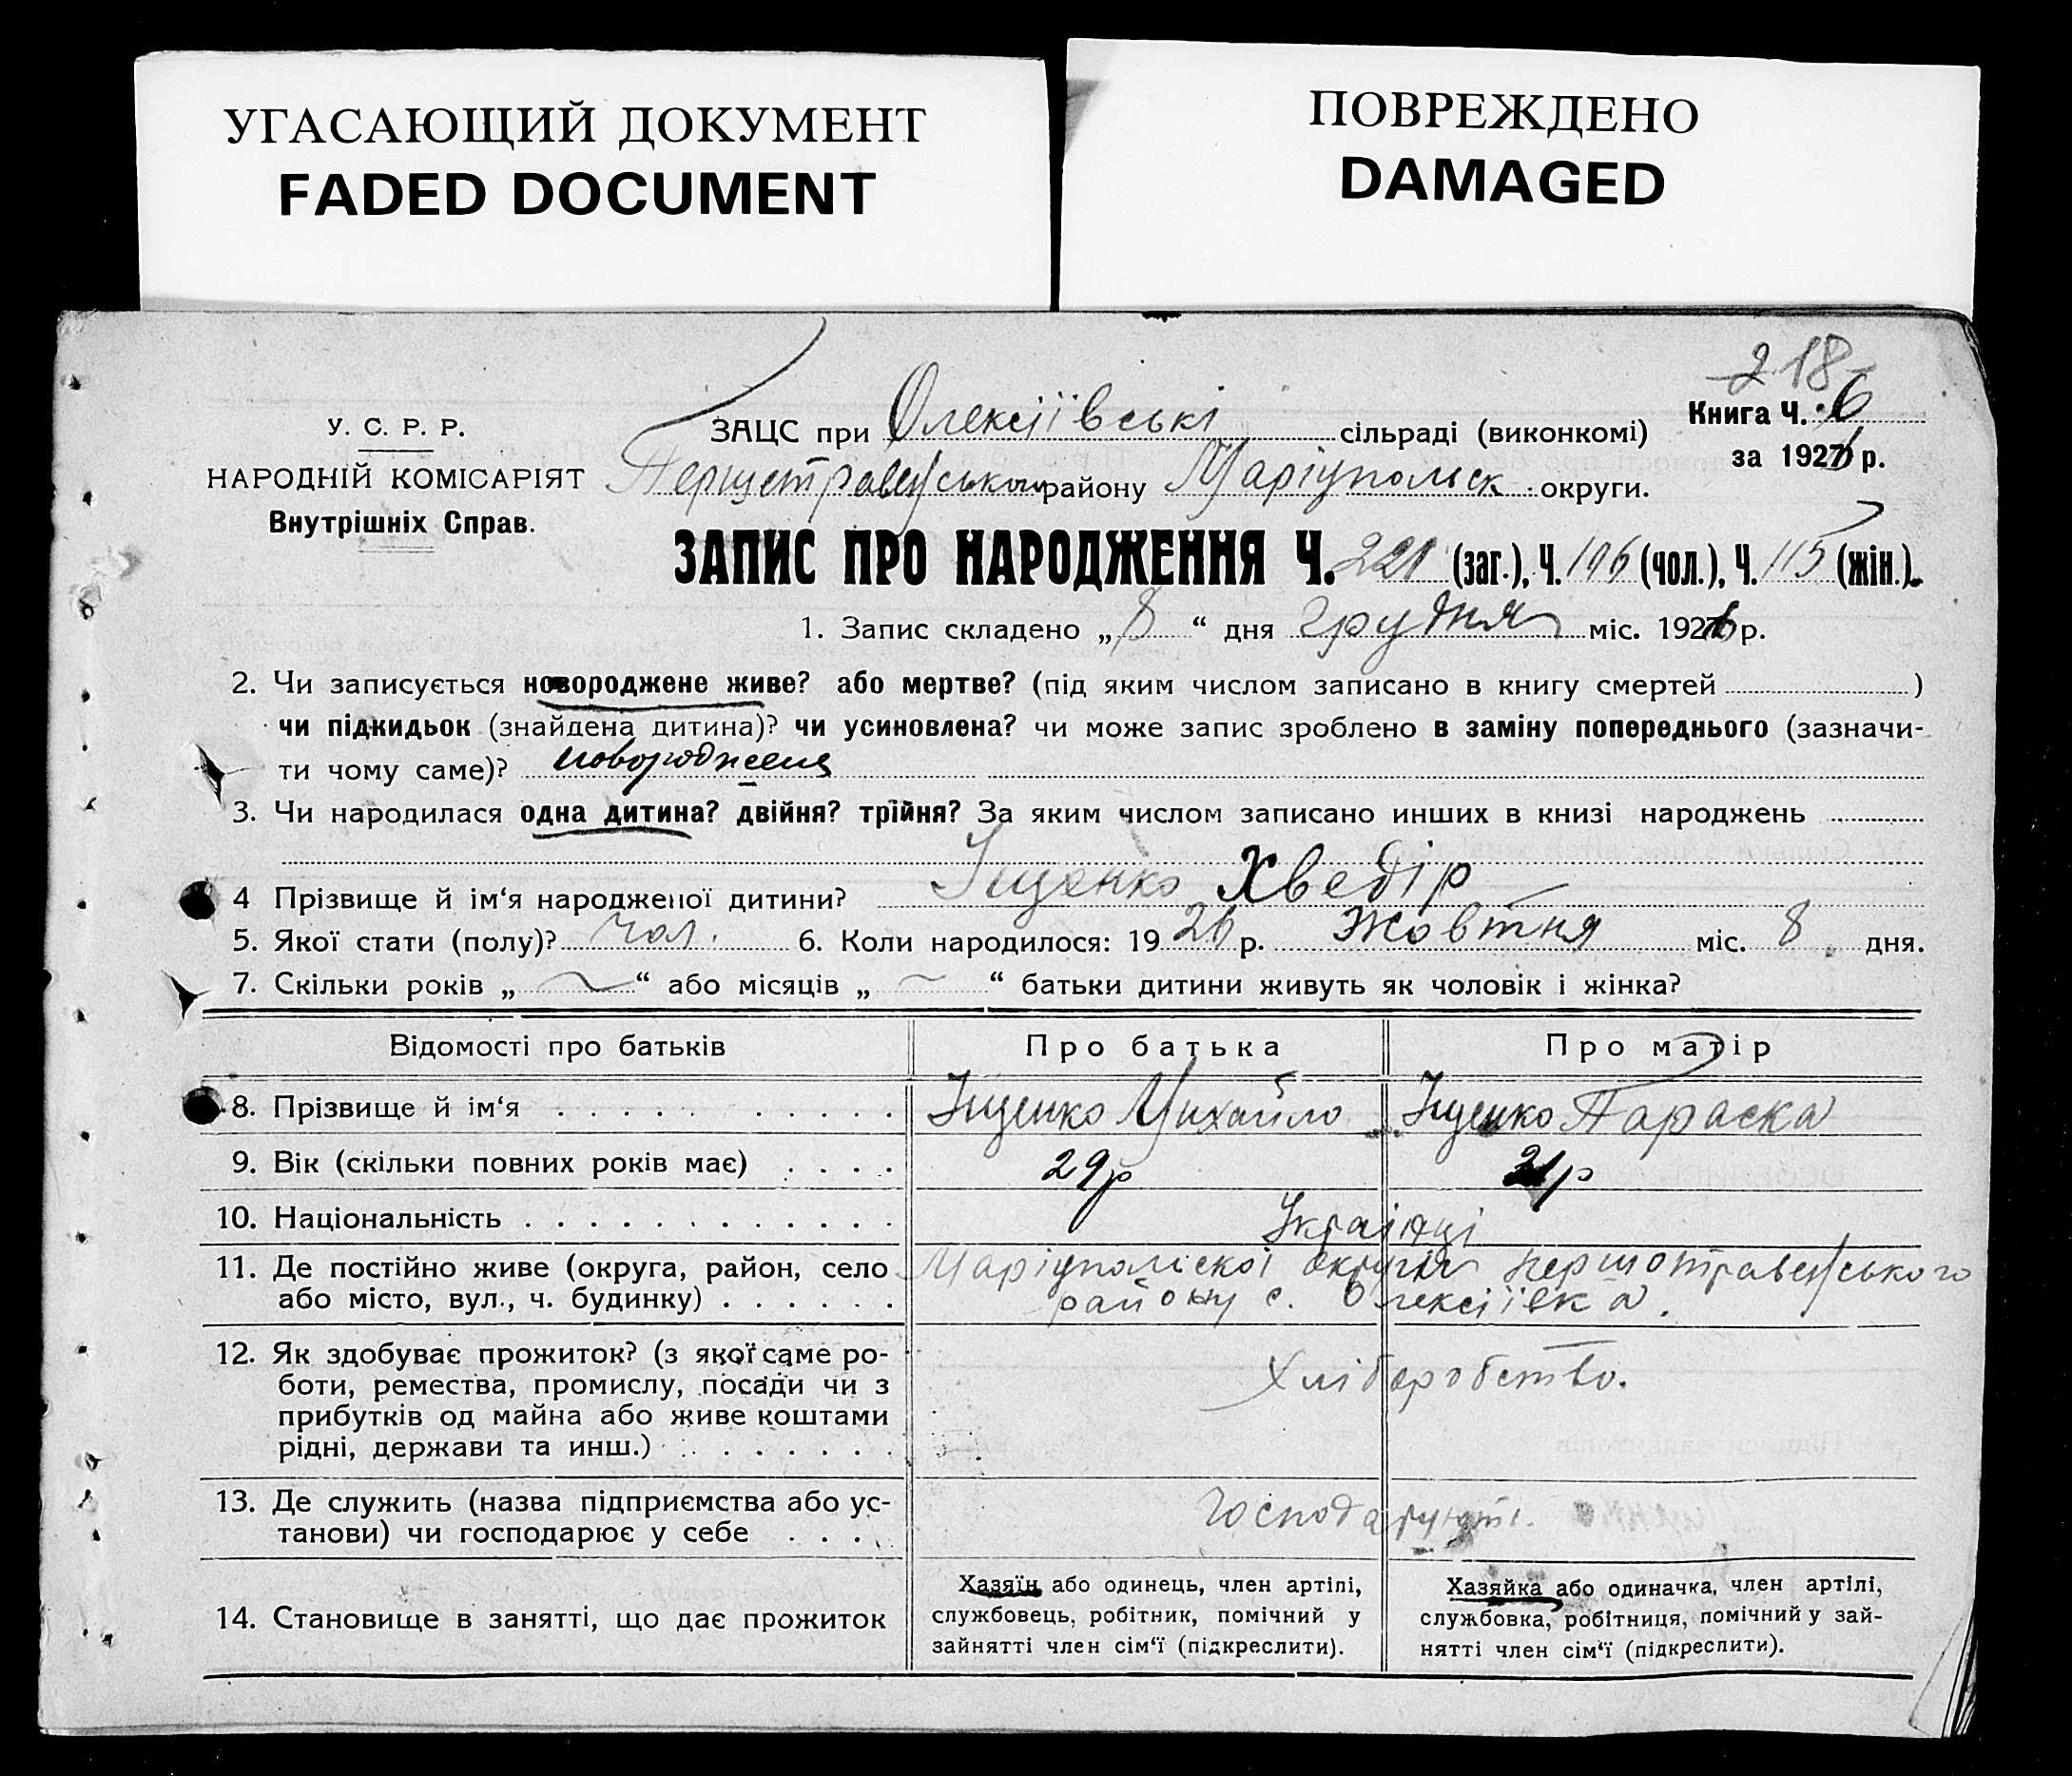 УГАСАЮЩИЙ ДОКУМЕНТ
FADED DOCUMENT
ПОВРЕЖДЕНО
DAMAGED
218
У. С. Р. Р.
НАРОДНІЙ КОМІСАРІЯТ
Внутрішніх Справ.
ЗАЦС при Олексіївські сільраді (виконкомі)
Книга Ч. 6
за 1926 р.
району Маріупольск округи.
ЗАПИС ПРО НАРОДЖЕННЯ Ч. 221 (заг.), Ч. 106 (чол.), Ч. 115 (жін.).
1. Запис складено „8“ дня грудня міс. 1926 р.
2. Чи записується новороджене живе? або мертве? (під яким числом записано в книгу смертей )
чи підкидьок (знайдена дитина)? чи усиновлена? чи може запис зроблено в заміну попереднього (зазначи-
ти чому саме)?
3. Чи народилася одна дитина? двійня? трійня? За яким числом записано инших в книзі народжень
4 Прізвище й ім‘я народженої дитини? Іщенко Хведір
5. Якої стати (полу)? чол. 6. Коли народилося: 1926 р. Жовтня міс. 8 дня.
7. Скільки років „ “ або місяців „ “ батьки дитини живуть як чоловік і жінка?
Відомості про батьків Про батька Про матір
8. Прізвище й ім‘я Іщенко Михайло Іщенко Параска
9. Вік (скільки повних років має) 29р 21р
10. Національність Українці
11. Де постійно живе (округа, район, село Маріупольскої округи першотравенського
або місто, вул., ч. будинку) району с. Олексіївка.
12. Як здобуває прожиток? (з якої саме ро- Хліборобство.
боти, ремества, промислу, посади чи з
прибутків од майна або живе коштами
рідні, держави та инш.)
13. Де служить (назва підприємства або ус- господарюють.
танови) чи господарює у себе
14. Становище в занятті, що дає прожиток
Хазяїн або одинець, член артілі,
службовець, робітник, помічний у
зайнятті член сім‘ї (підкреслити).
Хазяйка або одиначка, член артілі,
службовка, робітниця, помічний у зай-
нятті член сім‘ї (підкреслити).